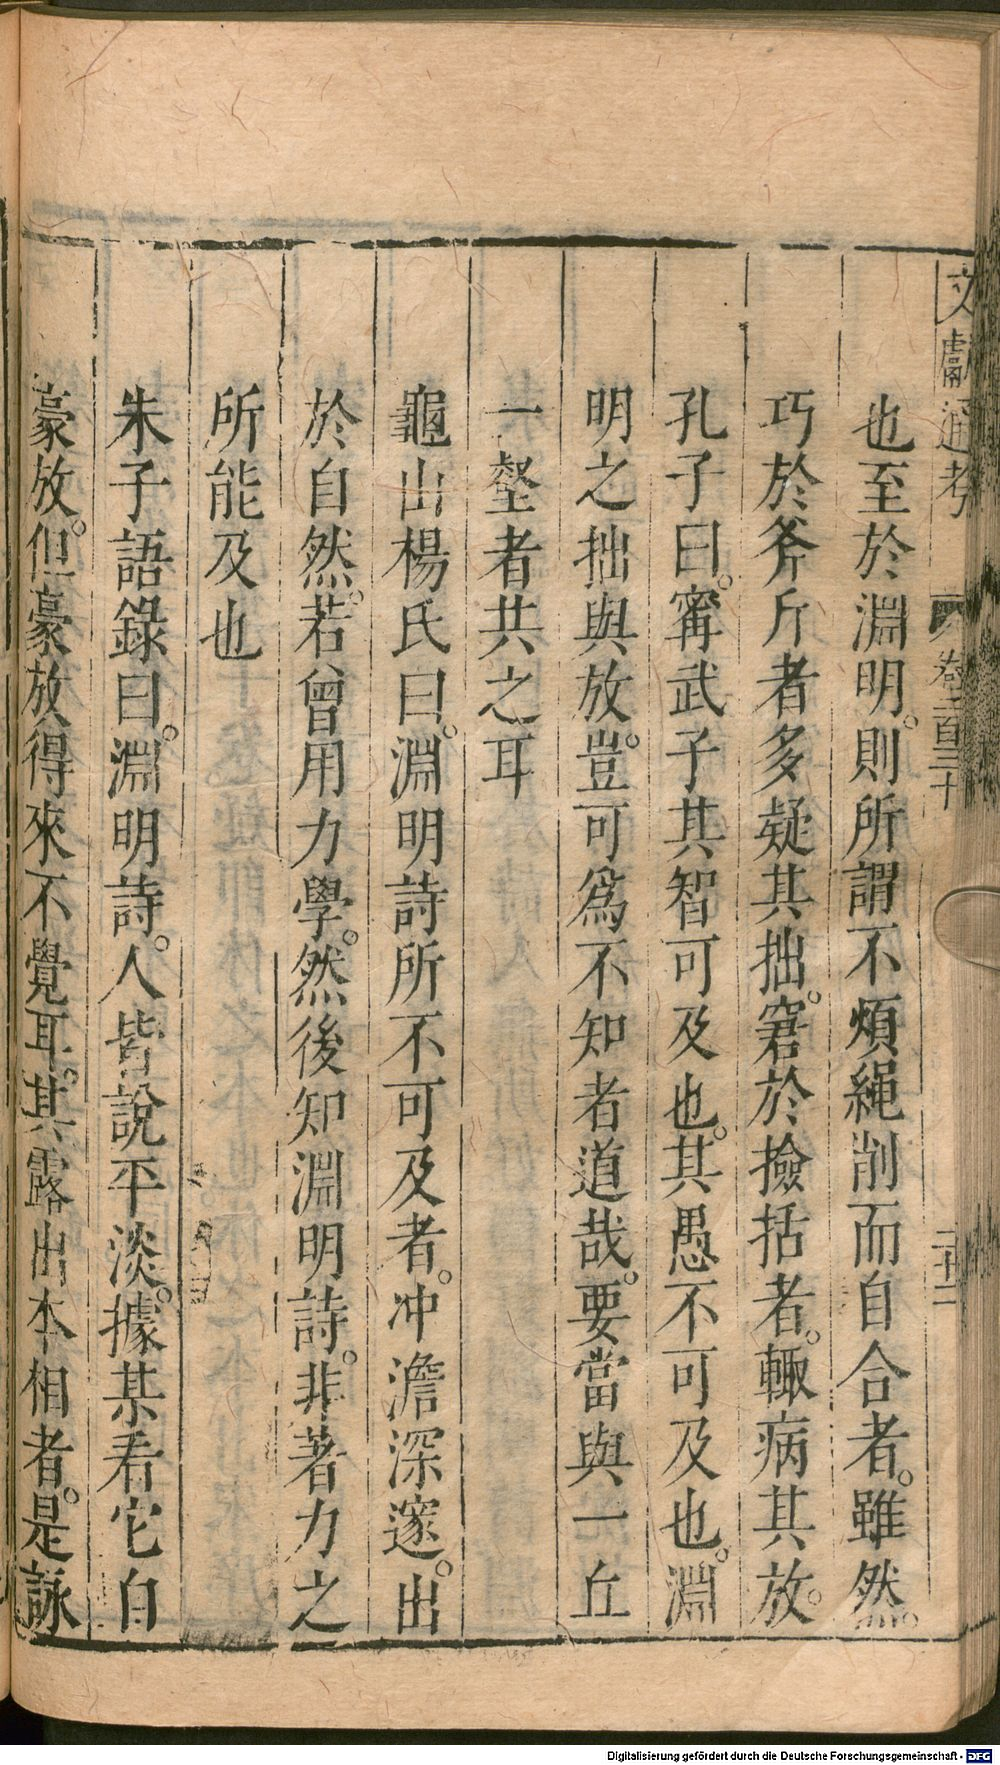 文獻通考 卷二百三十 二十二
也至於淵明。則所謂不煩繩削而自合者。雖然。
巧於斧斤者多疑其拙。窘於撿括者。輙病其放。
孔子曰。甯武子其智可及也。其愚不可及也。淵
明之拙與放。豈可爲不知者道哉。要當與一丘
一壑者共之耳
龜山楊氏曰。淵明詩所不可及者。冲澹深邃。出
於自然。若曾用力學。然後知淵明詩。非著力之
所能及也
朱子語錄曰。淵明詩。人皆說平淡。據某看它自
豪放。但豪放得來不覺耳。其露出本相者。是詠
Digitalisierung gefördert durch die Deutsche Forschungsgemeinschaft - DFG